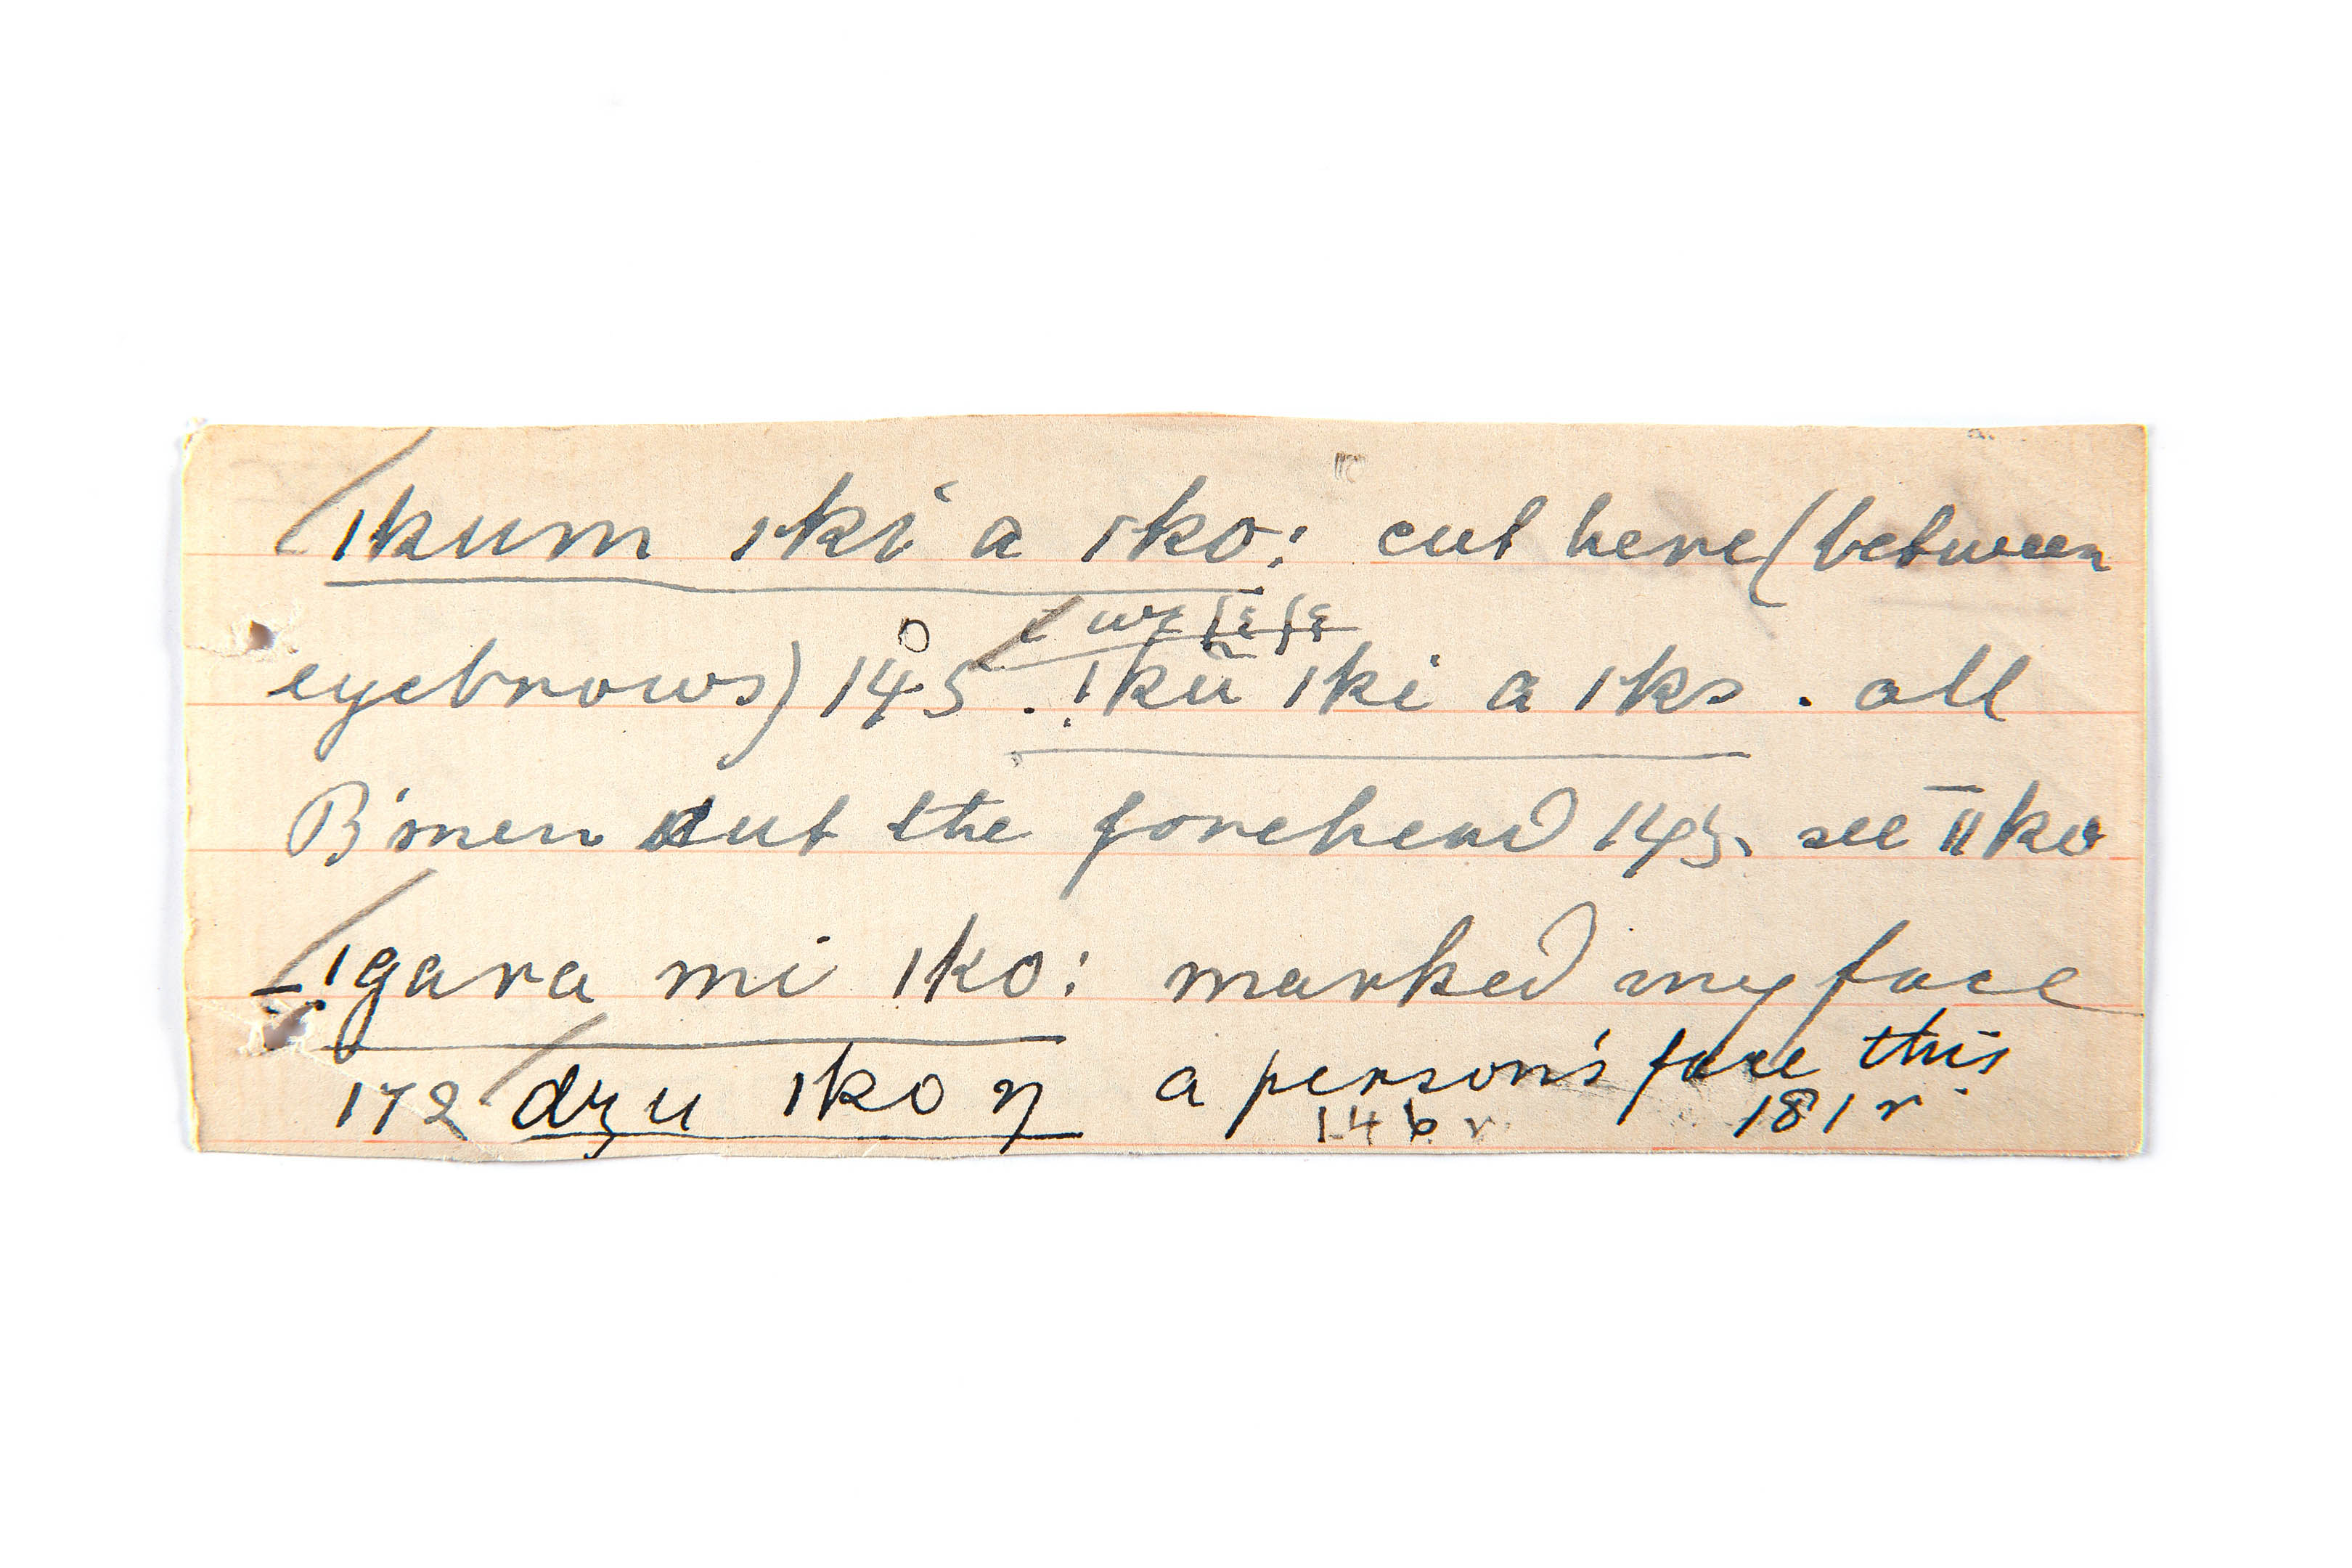 ıkum ıki a ıko: cut here (between
ɛ wɛ ʃɛʃɛ
eyebrows) 145. !kũ ıki a ıko. all
B'men cut the forehead 145. see ǁko
_!gara mi ıko: marked my face
172 dzu ıko η a person's face this
146 r 181 r